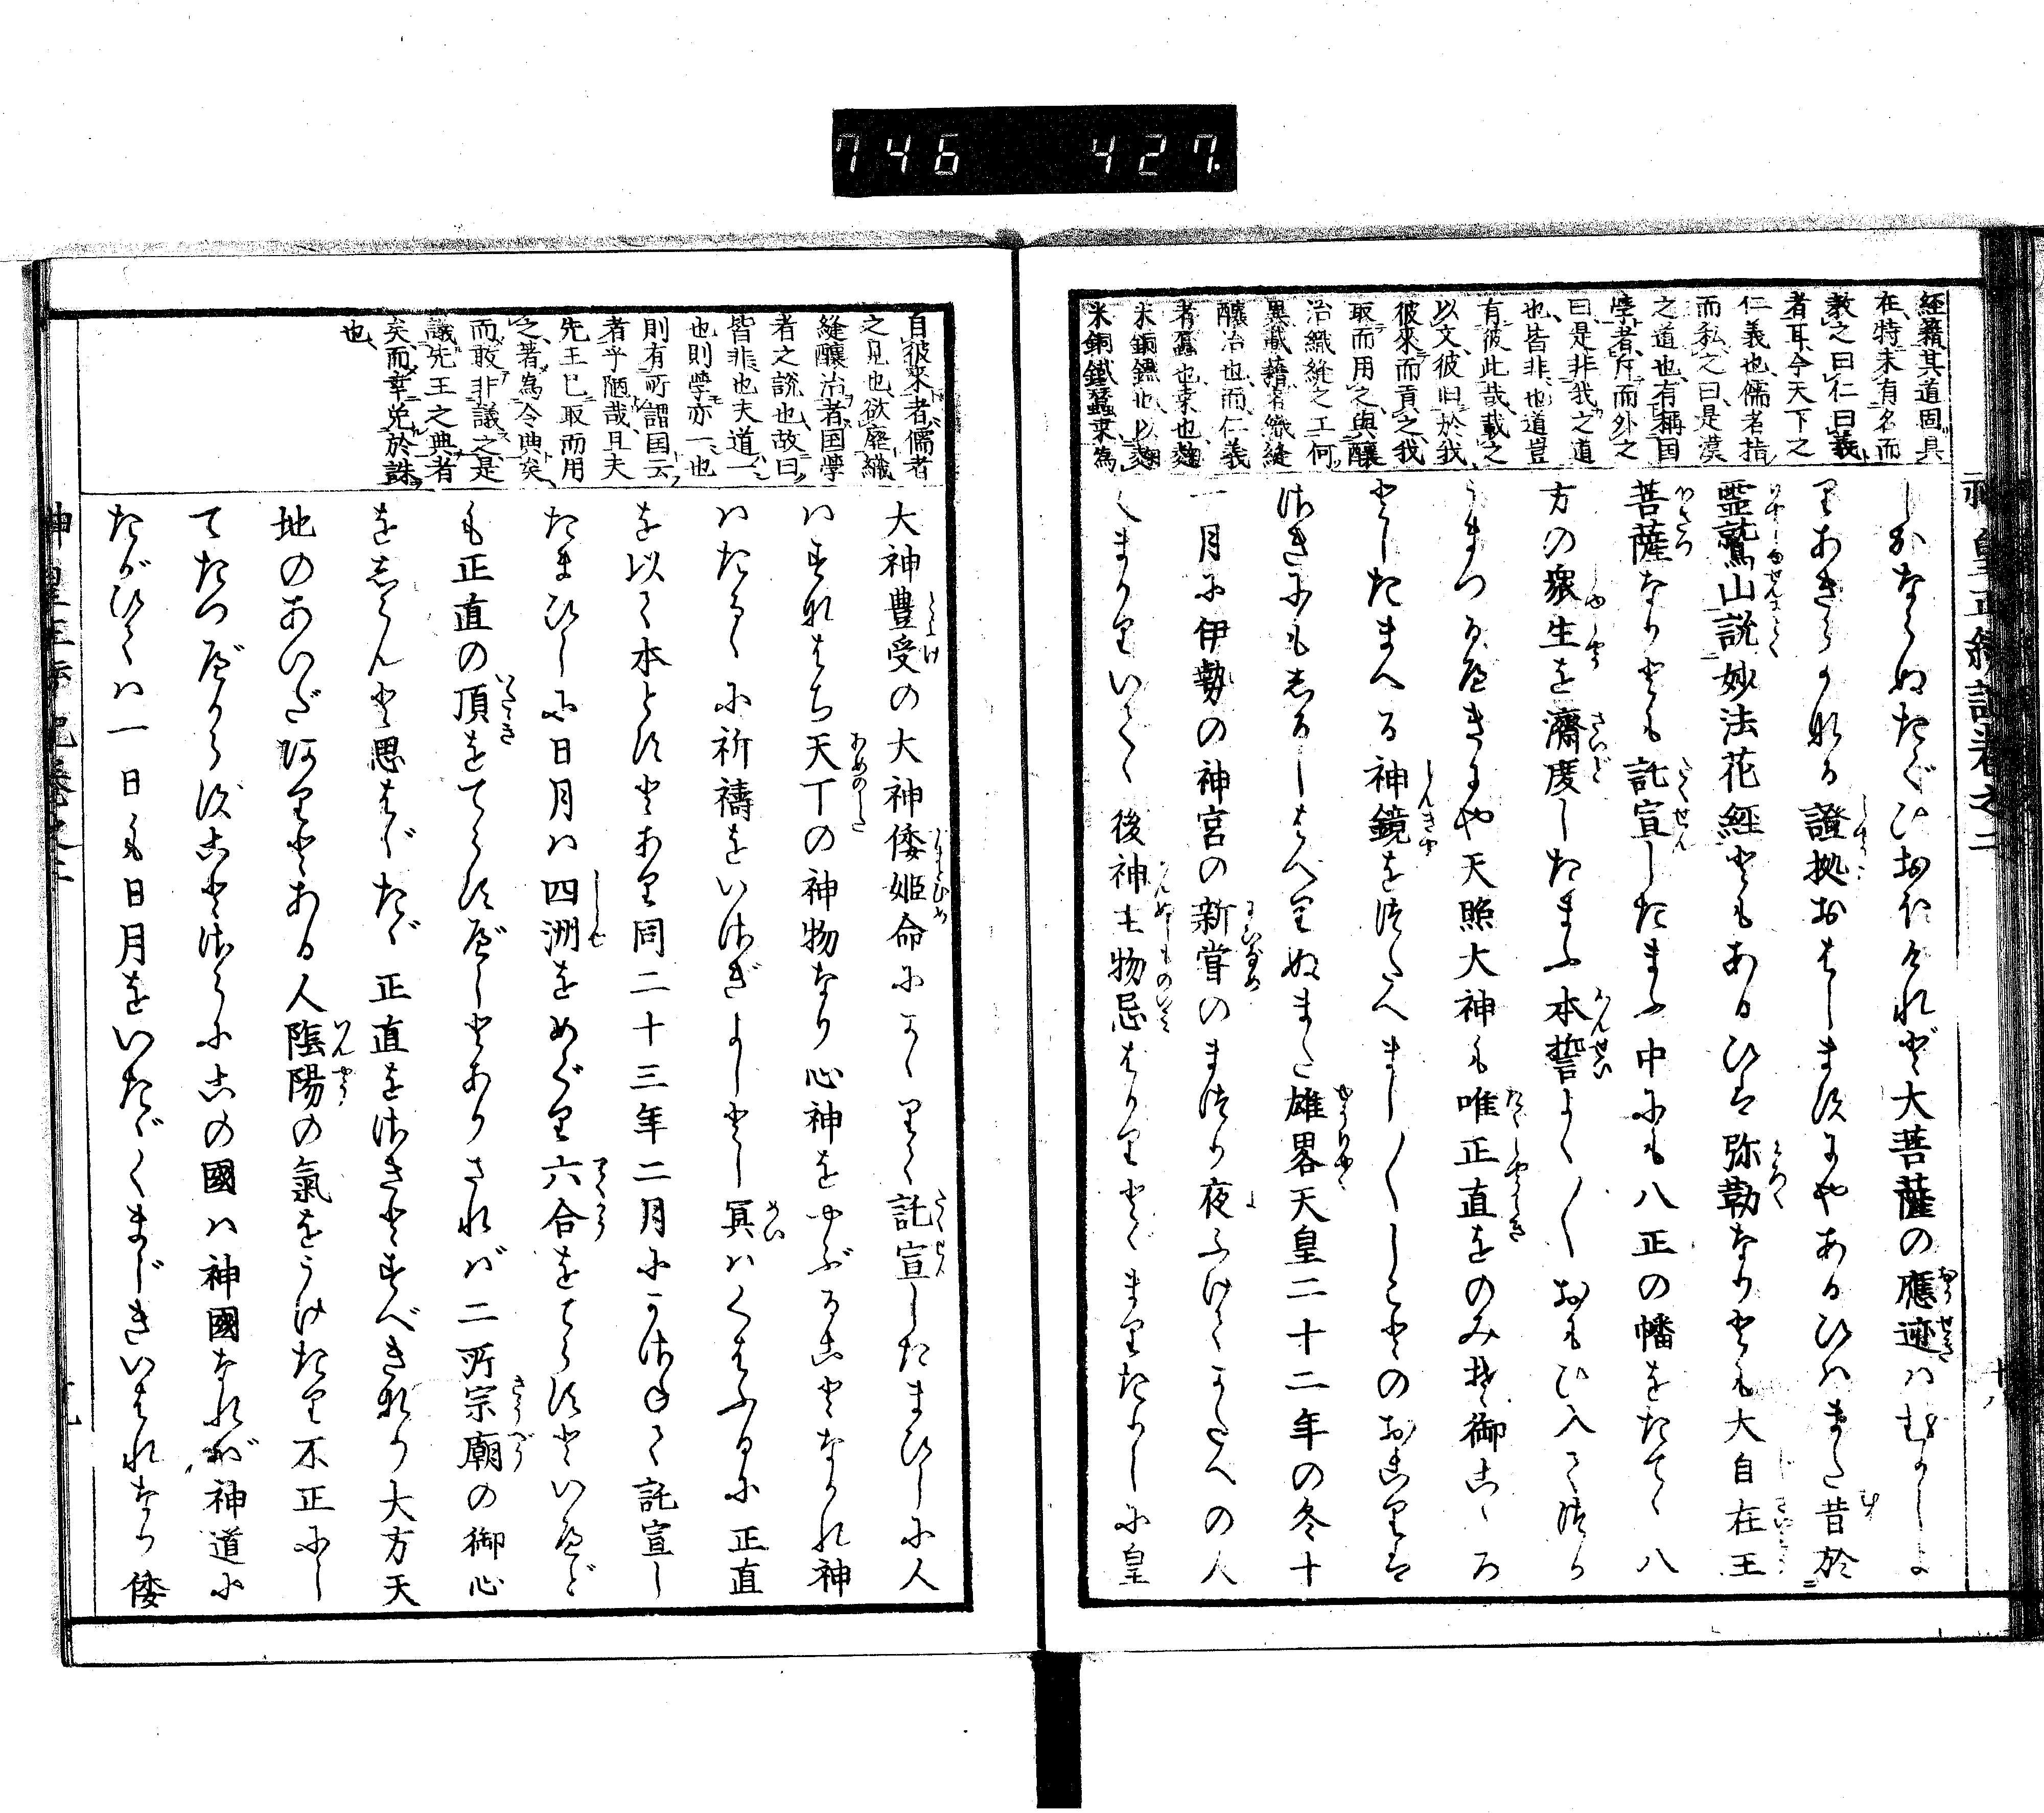 746 427.
経籍其道固具
在特未有名而
教之曰仁曰義
者耳今天下之
仁義也儒者指
而私之曰是漢
之道也有稱国
学者斥而外之
曰是非我之道
也皆非也道豈
有彼此哉載之
以文彼旧於我
彼来而貢之我
取而用之與釀
冶織縫之工何
異載籍者織縫
釀冶也而仁義
者蚕也桒也麹
米銅鐵也以麹
米銅鐵蚕桒為
しかならぬたぐひおほけれど大菩薩の應迹ハむかしよ
りあきらかなる證拠おはしますにやあるひハまた昔於
霊鷲山説妙法花経ともあるひは弥勒なりとも大自在王
菩薩なりとも託宣したまふ中にも八正の幡をたてゝ八
方の衆生を濟度したまふ本誓をよく〳〵おもひ入てつか
うまつるべきにや天照大神も唯正直をのみぞ御こゝろ
としたまへる神鏡をつたへまし〳〵しことのおこりは
さきにもしるしはべりぬまた雄畧天皇二十二年の冬十
一月に伊勢の神宮の新甞のまつり夜ふけてかたへの人
〳〵まかりいでゝ後神主物忌はかりとゞまりたりしに皇
神皇正統記巻之二
十八
自彼来者儒者
之見也欲廢織
縫釀冶者国學
者之説也故曰
皆非也夫道一
也則學亦一也
則有所謂国云
者乎陋哉且夫
先王已取而用
之著為令典矣
而敢非議之是
議先王之典者
矣而幸免於誅
也
大神豊受の大神倭姫命にかゝりて託宣したまひしに人
ハすなはち天下の神物なり心神をやぶることなかれ神
ハたるゝに祈禱をいさぎよしとし冥ハくはふるに正直
を以て本とすとあり同二十三年二月にかさねて託宣し
たまひしに日月ハ四洲をめぐり六合をてらすといへど
も正直の頂をてらすべしとありされバ二所宗廟の御心
をしらんと思はゞたゞ正直をさきとすべきなり大方天
地のあいだありとある人陰陽の氣をうけたり不正にし
てたつべからずことさらにこの國ハ神國なれバ神道に
たがひてハ一日も日月をいたゞくまじきいはれなり倭
神皇正統記巻之二
十九